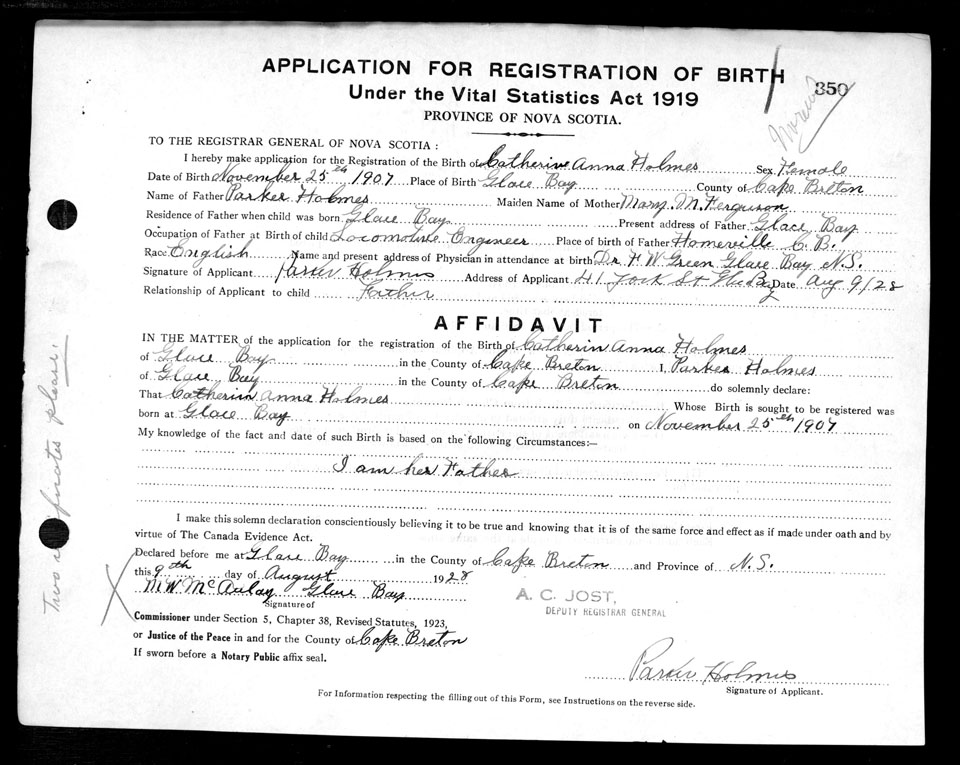 APPLICATION FOR REGISTRATION OF BIRTH
350
Under the Vital Statistics Act 1919
PROVINCE OF NOVA SCOTIA.
TO THE REGISTRAR GENERAL OF NOVA SCOTIA :
I hereby make application for the Registration of the Birth of Catherine Anna Holmes Sex Female
Date of Birth November 25th 1907 Place of Birth Glace Bay County of Cape Breton
Name of Father Parker Holmes Maiden Name of Mother Mary M. Ferguson
Residence of Father when child was born Glace Bay Present address of Father Glace Bay
Occupation of Father at Birth of child Locomotive Engineer Place of birth of Father Homeville C.B.
Race English Name and present address of Physician in attendance at birth Dr F W Green Glace Bay N.S.
Signature of Applicant Parker Holmes Address of Applicant 41 York St Glce Bay Date Aug 9/28
Relationship of Applicant to child Father
AFFIDAVIT
IN THE MATTER of the application for the registration of the Birth of Catherin Anna Holmes
of Glace Bay in the County of Cape Breton I, Parker Holmes
of Glace Bay in the County of Cape Breton do solemnly declare:
That Catherin Anna Holmes Whose Birth is sought to be registered was
born at Glace Bay on November 25th 1907
My knowledge of the fact and date of such Birth is based on the following Circumstances:—
I am her Father
I make this solemn declaration conscientiously believing it to be true and knowing that it is of the same force and effect as if made under oath and by
virtue of The Canada Evidence Act.
Declared before me at Glace Bay in the County of Cape Breton and Province of N.S.
this 9th day of August 1928
M.W. McAulay Glace Bay
A. C. JOST,
DEPUTY REGISTRAR GENERAL
Signature of
Commissioner under Section 5, Chapter 38, Revised Statutes, 1923,
or Justice of the Peace in and for the County of Cape Breton
If sworn before a Notary Public affix seal.
Parker Holmes
Signature of Applicant.
For Information respecting the filling out of this Form, see Instructions on the reverse side.
Two please.